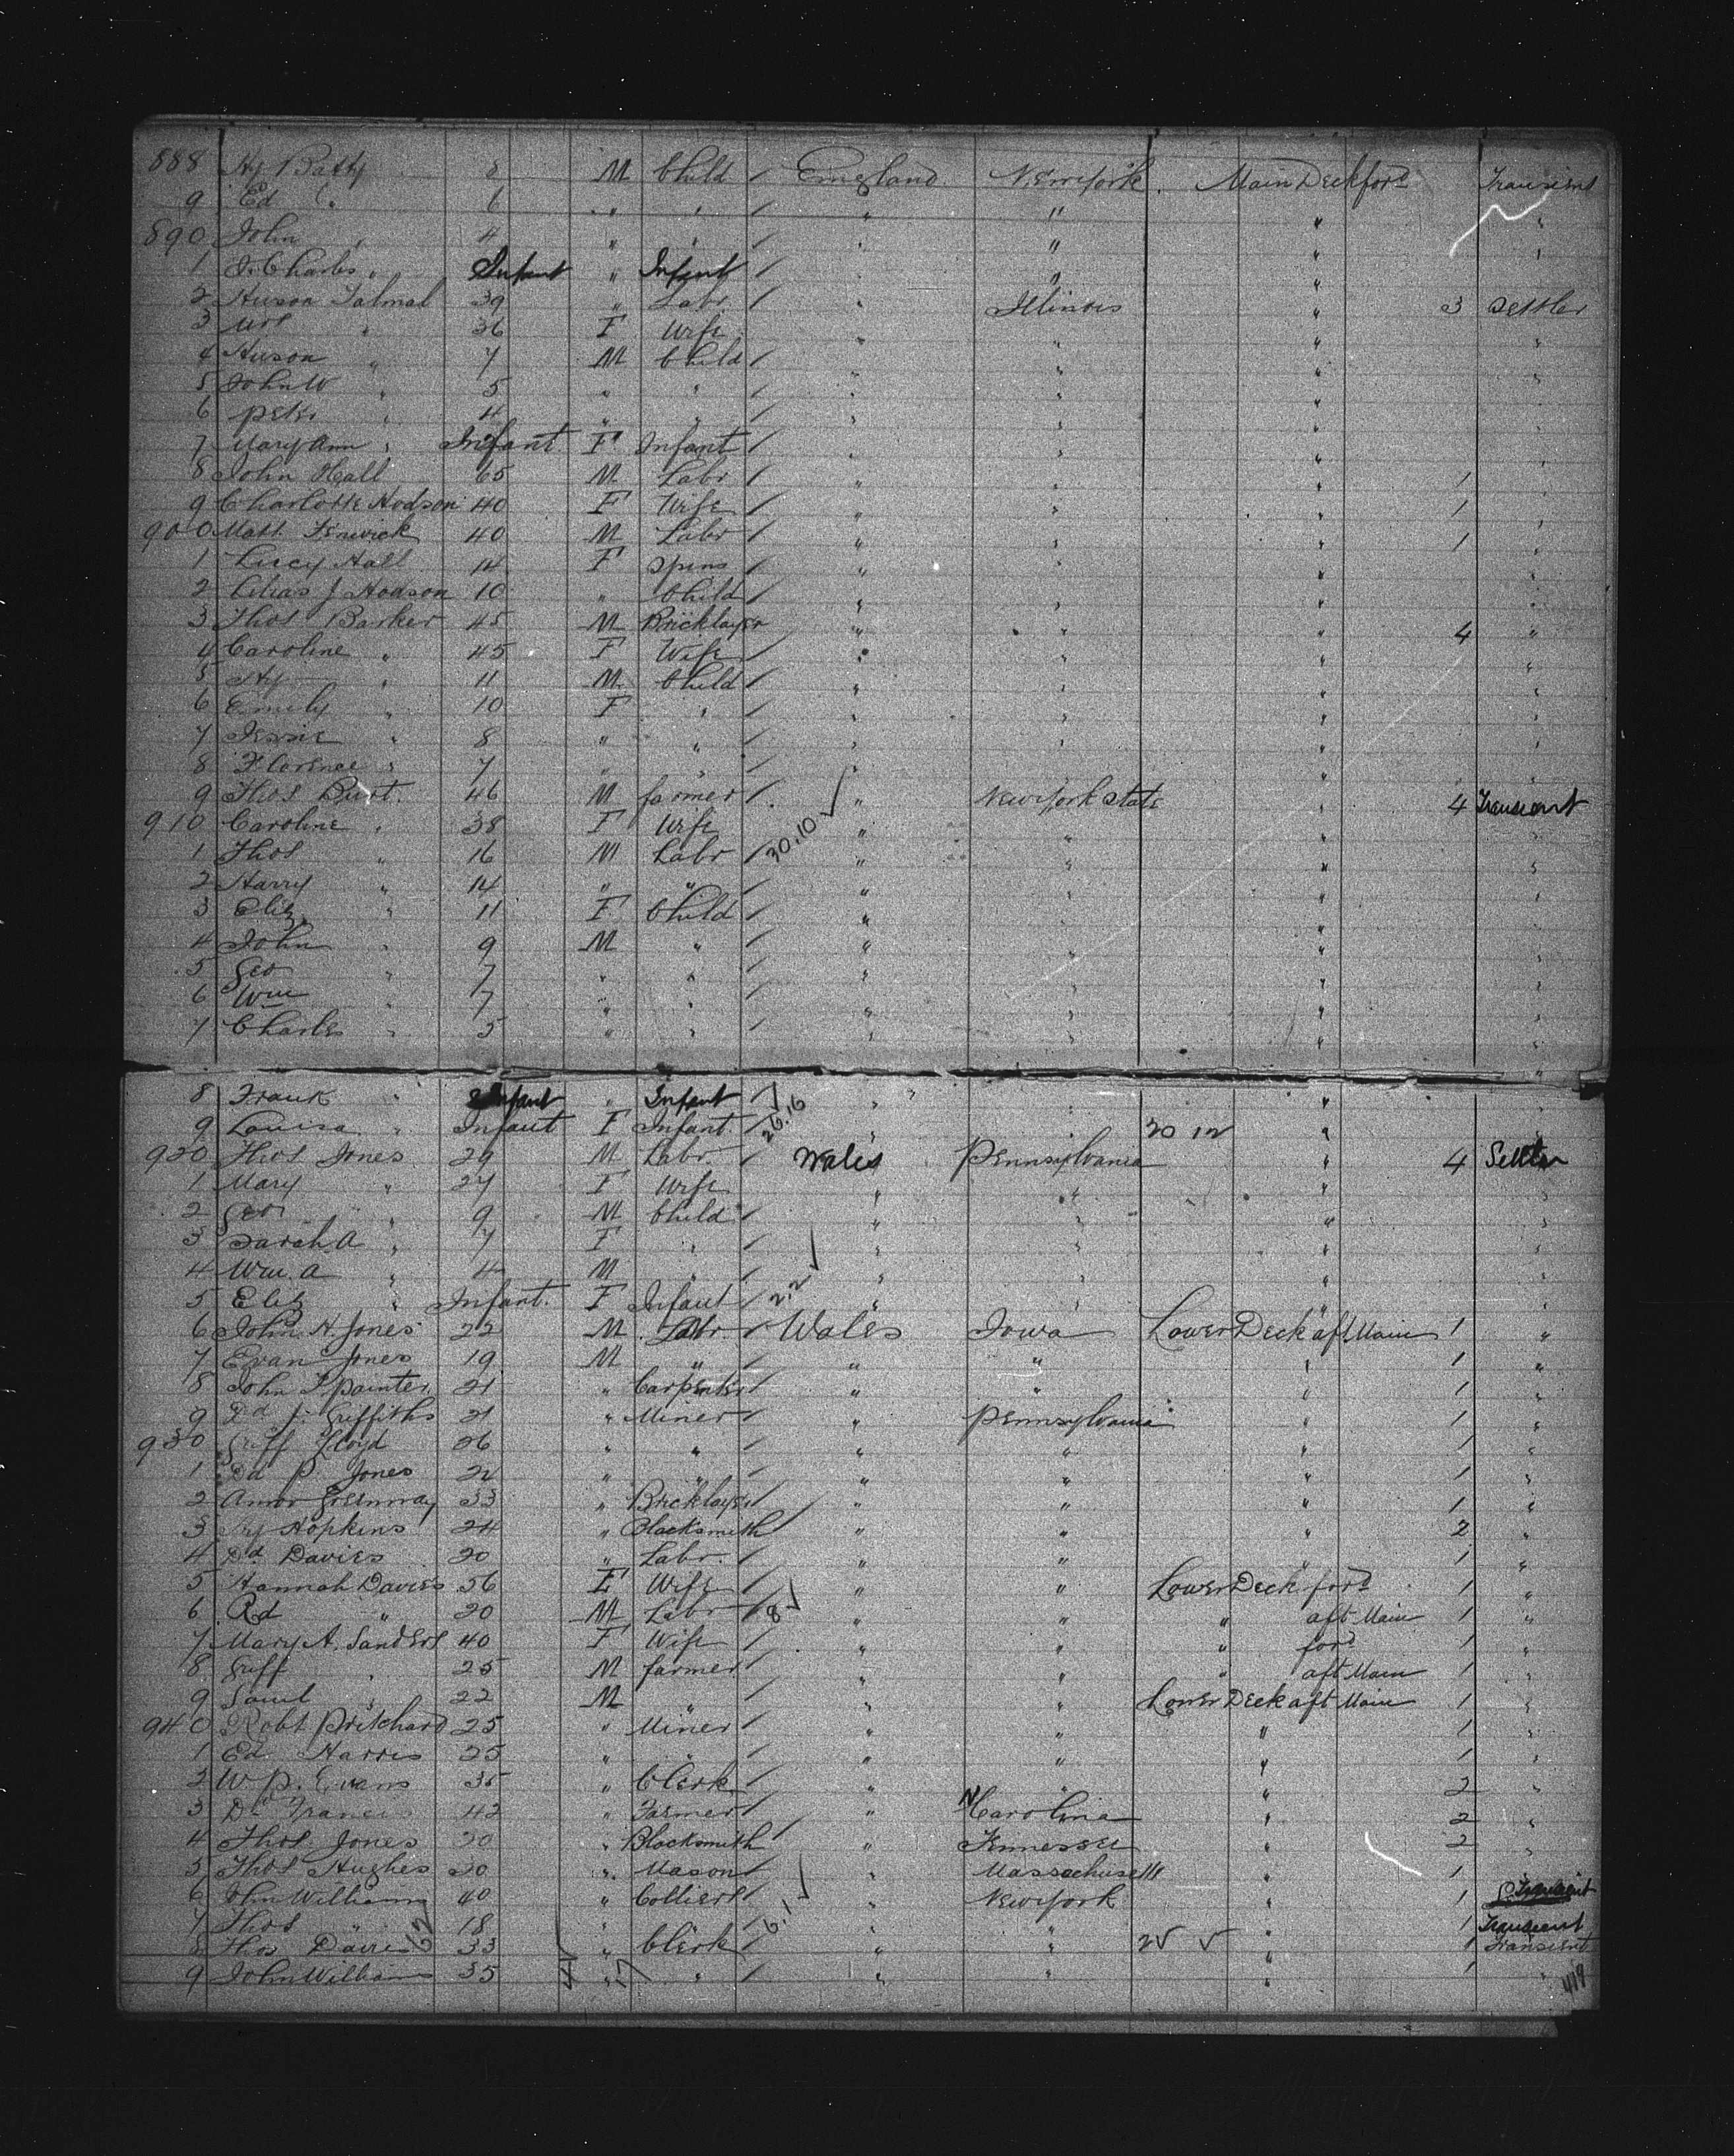 888 Hy Batty 8 M Child / England New York Main Deck ford Transient
9 Ed " 6 " " / " " " "
890 John " 4 " " / " " " "
1 J. Charles " Infant " Infant / " " " "
2 Huson Talmal 39 " Labr / " Illinois " 3 Settler
3 Mrs " 36 F Wife " " " "
4 Huson " 7 M Child / " " " "
5 John W " 5 " " / " " " "
6 Peter " 4 " " / " " " "
7 Mary Ann " Infant F Infant / " " " "
8 John Hall 65 M Labr / " " " 1 "
9 Charlotte Hodson 40 F Wife / " " " 1 "
900 Matt Fenwick 40 M Labr / " " " 1 "
1 Lucy Hall 14 F Spins / " " " "
2 Chas J Hodson 10 " Child / " " " "
3 Thos Barker 45 M Bricklayer " " " 4 "
4 Caroline " 45 F Wife / " " " "
5 Hy " 11 M Child / " " " "
6 Emily " 10 F " / " " " "
7 Jessie " 8 " " / " " " "
8 Florence " 7 " " / " " " "
9 Thos Burt. 46 M farmer / " New York State " 4 Transient
910 Caroline " 38 F Wife 30.10 " " " "
1 Thos " 16 M Labr / " " " "
2 Harry " 14 " " / " " " "
3 Eliz " 11 F Child / " " " "
4 John " 9 M " / " " " "
5 Geo " 7 " " / " " " "
6 Wm " 7 " " / " " " "
7 Charles " 5 " " / " " " "
8 Frank " Infant " Infant / " " " "
9 Louisa " Infant F Infant / 26.16 " " 20 12 " "
920 Thos Jones 29 M Labr / Wales Pennsylvania " 4 Settler
1 Mary " 27 F Wife " " " "
2 Geo " 9 M Child / " " " "
3 Sarah A " 7 F " / " " " "
4 Wm. A " 4 M " / " " " "
5 Eliz " Infant. F Infant / 2.2 " " " "
6 John H. Jones 22 M Labr / Wales Iowa Lower Deck aft Main 1 "
7 Evan Jones 19 M " / " " " 1 "
8 John T Painter 21 " Carpenter / " " " 1 "
9 Dd J. Griffiths 21 " Miner / " Pennsylvania " 1 "
930 Griff Lloyd 26 " " / " " " 1 "
1 Dd P. Jones 22 " " / " " " 1 "
2 Amos Greenway 33 " Bricklayer / " " " 1 "
3 Hy Hopkins 24 " Blacksmith / " " " 2 "
4 Dd Davies 20 " Labr. / " " " 1 "
5 Hannah Davies 56 F Wife / " " Lower Deck ford 1 "
6 Rd " 20 M Labr / 8 " " " aft Main 1 "
7 Mary A. Sanders 40 F Wife / " " " ford 1 "
8 Griff " 25 M farmer / " " " aft Main 1 "
9 Saml " 22 M " / " " Lower Deck aft Main 1 "
940 Robt Pritchard 25 " Miner / " " " 1 "
1 Ed Harris 25 " " / " " " 1 "
2 W P. Evans 35 " Clerk / " " " 2 "
3 Dd Francis 42 " Farmer / " N Carolina " 2 "
4 Thos. Jones 20 " Blacksmith " Tennessee " 2 "
5 Thos Hughes 20 " Mason / " Massachusetts " 1 "
6 John Williams 40 " Colliers / 6.1 " New York " 1 Transient
7 Thos " 18 " " / " " " 1 Transient
8 Thos Davies 33 " Clerk / " " 25 " 1 Transient
9 John Williams 35 " " / " " " 1 "
419